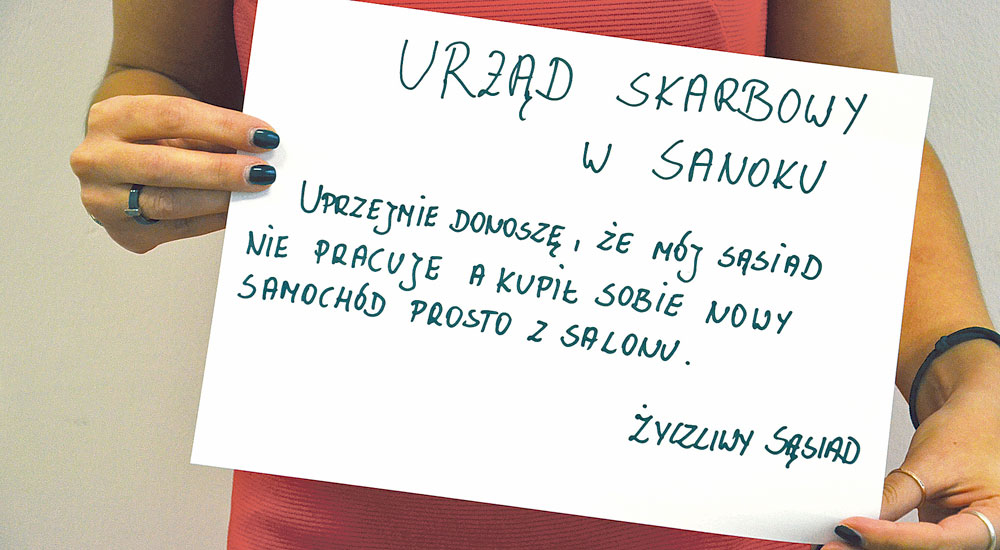 URZĄD SKARBOWY
W SANOKU
UPRZEJMIE DONOSZĘ, ŻE MÓJ SĄSIAD
NIE PRACUJE A KUPIŁ SOBIE NOWY
SAMOCHÓD PROSTO Z SALONU.
ŻYCZLIWY SĄSIAD